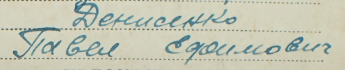 Денисенко
Павел Ефимович